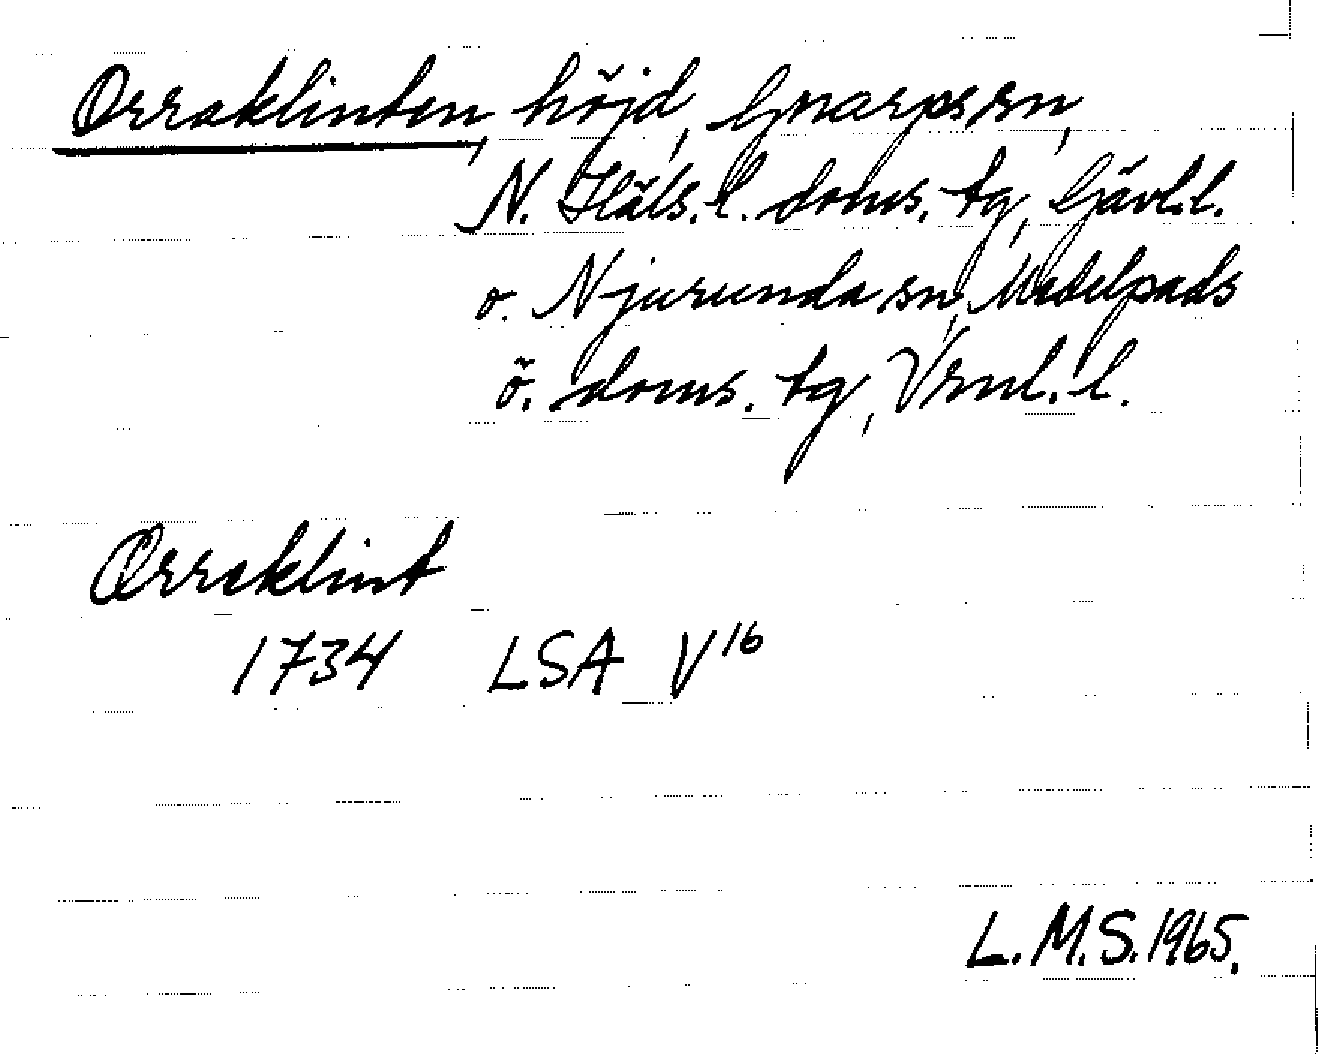 Orraklinten, höjd, Gnarps sn,
N. Häls. l. doms. tg, Gävl. l.
o. Njurunda sn, Medelpads
ö. doms. tg, Vrnl. l.
Orraklint
1734 LSA V16
L.M.S. 1965.